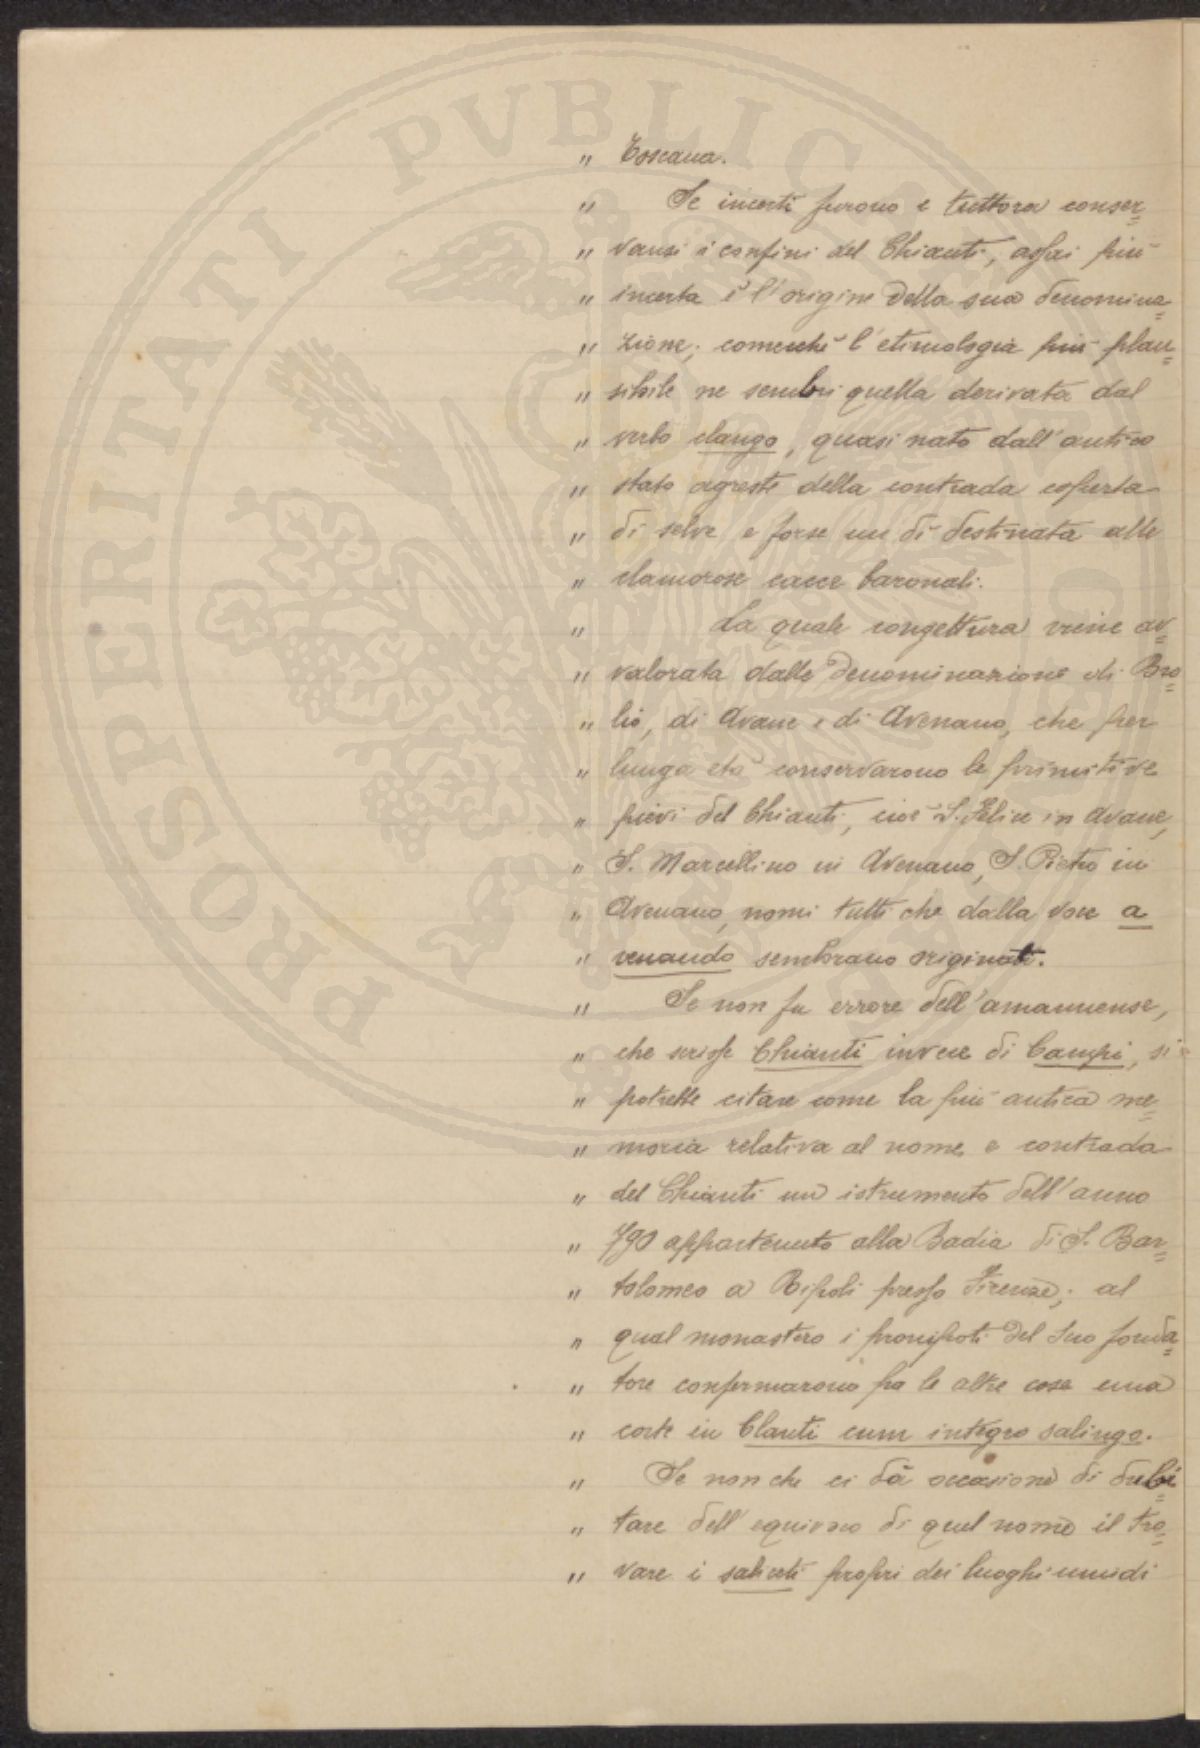 " Toscana.
" Se incerti furono e tuttora conser=
" vansi i confini del Chianti, assai più
" incerta è l'origine della sua denomina=
" zione; comecchè l'etimologia più plau=
" sibile ne sembri quella derivata dal
" verbo clango, quasi nato dall'antico
" stato agreste della contrada coperta
" di selve e forse un dì destinata alle
" clamorose cacce baronali.
" La quale congettura viene av=
" valorata dalle denominazione di Bro=
" lio, di Avane e di Avenano, che per
" lunga età conservarono le primitive
" pievi del Chianti, cioè S. Felice in Avane,
" S. Marcellino in Avenano, S. Pietro in
" Avenano, nomi tutti che dalla voce a
" venando sembrano originati.
" Se non fu errore dell'amanuense,
" che scrisse Chianti invece di Campi, si
" potrebbe citare come la più antica me=
" moria relativa al nome e contrada
" del Chianti un istrumento dell'anno
" 790 appartenuto alla Badia di S. Bar=
" tolomeo a Ripoli presso Firenze; al
" qual monastero i pronipoti del suo fonda=
" tore confermarono fra le altre cose una
" corte in Clanti cum integro salingo.
" Se non che ci dà occasione di dubi=
" tare dell'equivoco di quel nome il tro=
" vare i saliceti propri dei luoghi umidi
PROSPERITATI PVBLICAE